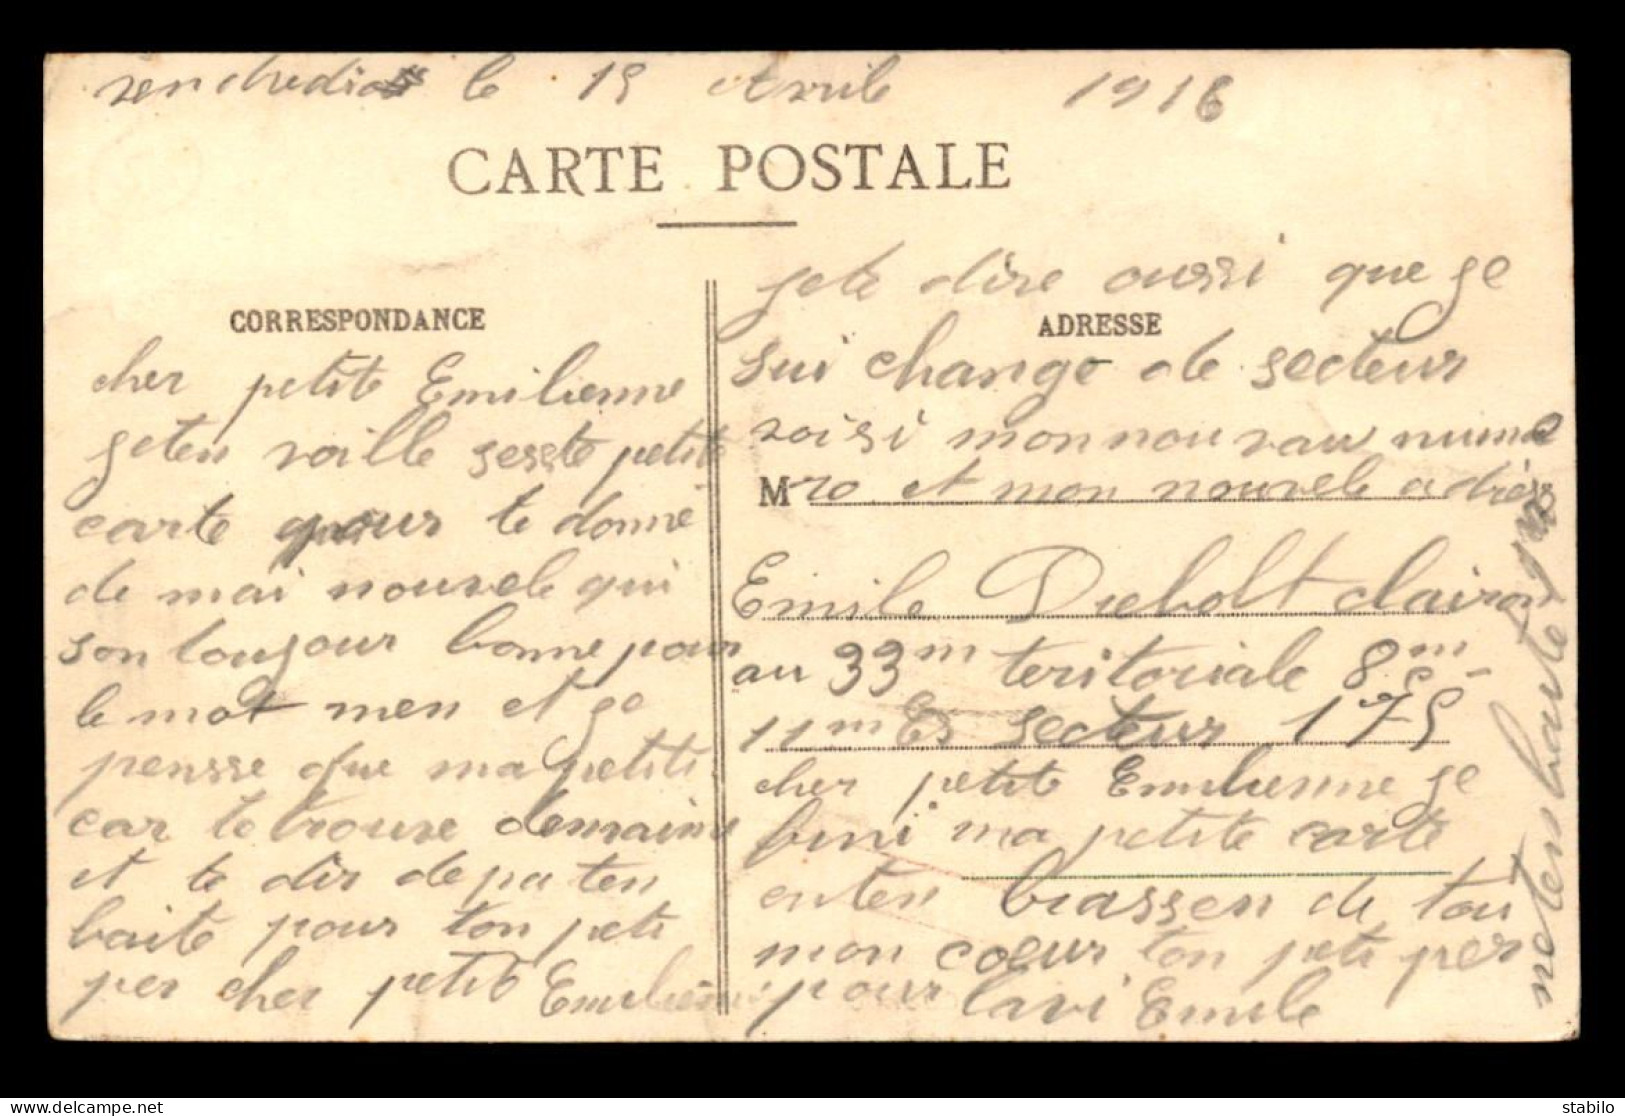 vendredi le 15 Avril 1916
CARTE POSTALE
CORRESPONDANCE
cher petite Emilienne
jeten voille sesste petite
carte pour te donné
de mai nouvele qui
son toujour bonne pour
le mot men et je
pensse que ma petite
car te trouve demaime
et te dir de pa ten
baite pour ton peti
per cher petite Emilienne
jete dire aussi que je
ADRESSE
sui change de secteur
voisi mon nouvau numé
M ro et mon nouvele adrés
Emile Diebolt clairon
au 33m teritoriale 8m
11m Es secteur 175
cher petite Emilienne je
fini ma petite carte
enten brassen de tou
mon coeur ton peti per
pour lavi Emile
neten baite pas
stabilo_4